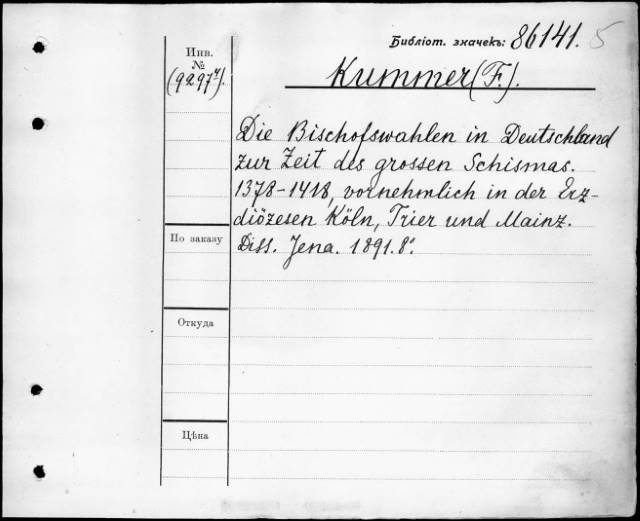 Библіот. значекъ: 86141. 5
Инв.
№
(9297ч).
Kummer (F.).
Die Bischofswahlen in Deutschland
zur Zeit des grossen Schismas.
1378-1418, vornehmlich in der Erz-
diözesen Köln, Trier und Mainz.
Diss. Jena. 1891. 8°.
По заказу
Откуда
Цѣна